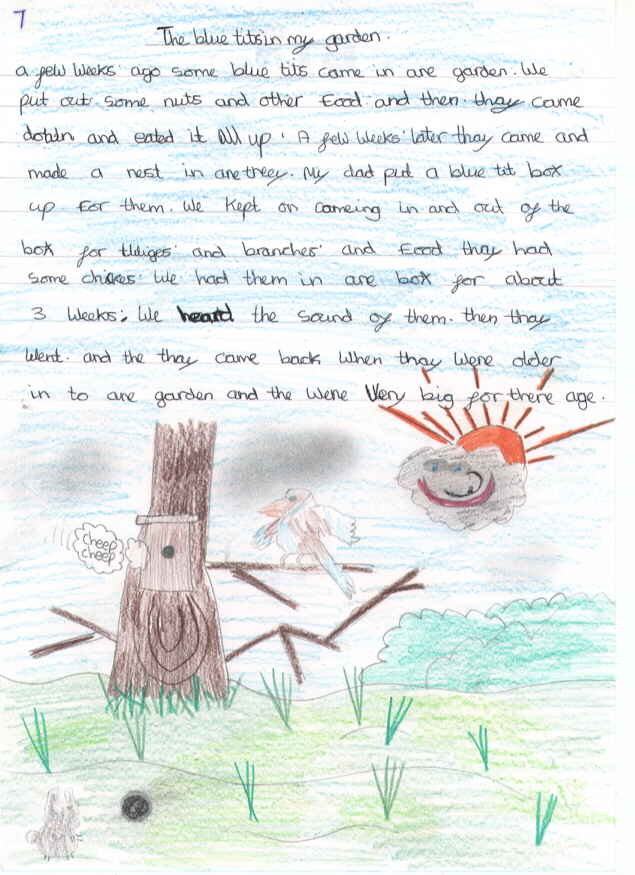 7
The blue tits in my garden.
a few weeks ago some blue tits came in are garden. We
put out some nuts and other food and then thay came
down and eated it all up. A few weeks later thay came and
made a nest in are treey. My dad put a blue tit box
up for them. We kept on comeing in and out of the
box for twiges and branches and food thay had
some chickes. We had them in are box for about
3 weeks. We heard the sound of them. then thay
went. and the thay came back when thay were older
in to are garden and the were very big for there age.
cheep
cheep